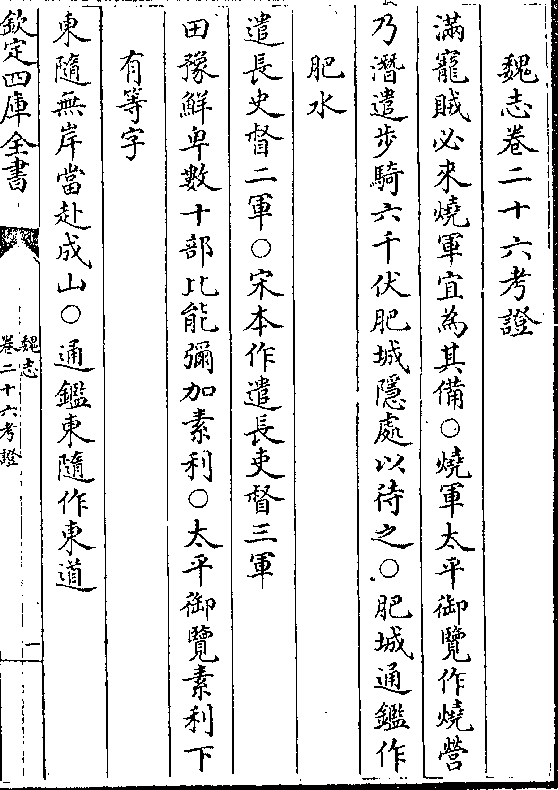 魏志卷二十六考證
滿寵賊必來燒軍宜為其備○燒軍太平御覽作燒營
乃潛遣步騎六千伏肥城隱處以待之○肥城通鑑作
肥水
遣長史督二軍○宋本作遣長吏督三軍
田豫鮮卑數十部比能彌加素利○太平御覽素利下
有等字
東隨無岸當赴成山○通鑑東隨作東道
欽定四庫全書
魏志
卷二十六考證
一